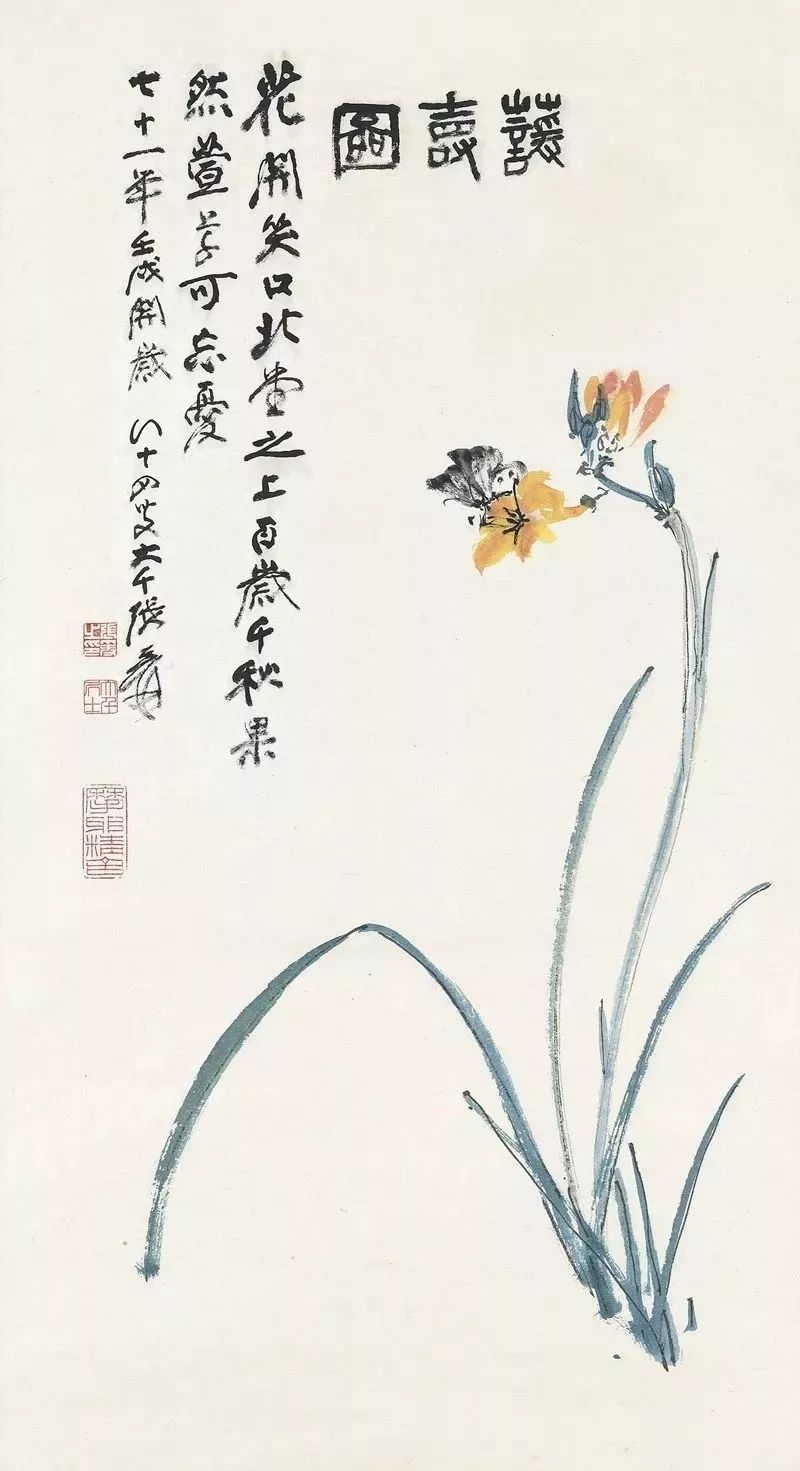 蘐壽圖
花開笑口北堂之上百歲千秋果
然萱草可忘憂
七十一年壬戌開歲 八十四叟大千張爰
張爰之印
大千居士